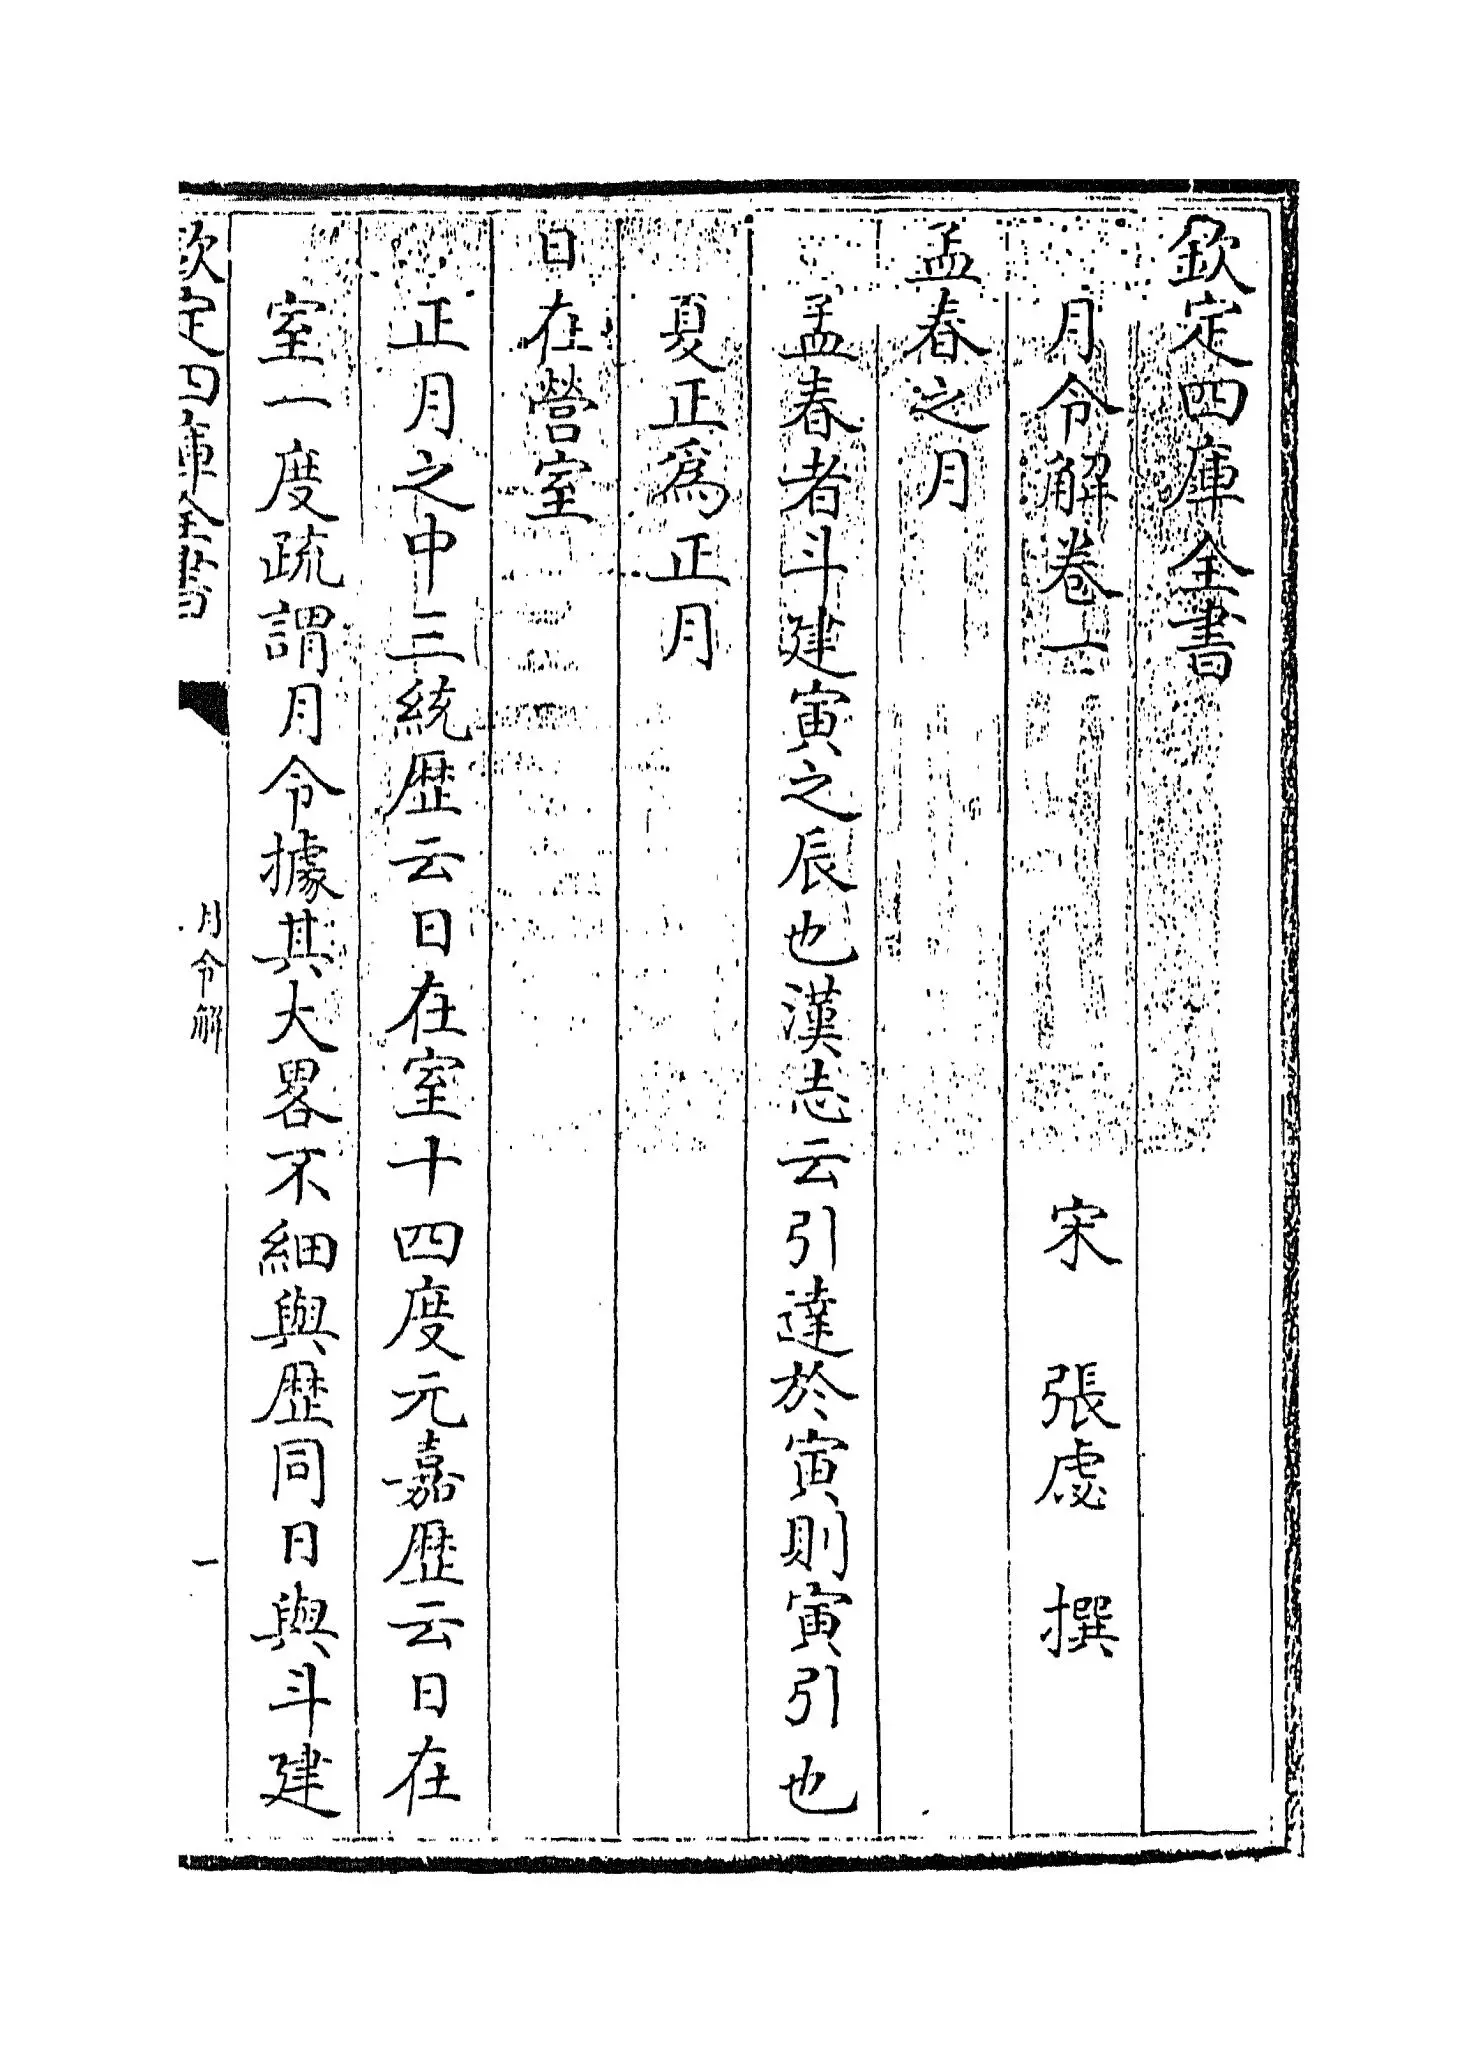 欽定四庫全書
月令解卷一
宋 張虙 撰
孟春之月
孟春者斗建寅之辰也漢志云引達於寅則寅引也
夏正為正月
日在營室
正月之中三統歴云日在室十四度元嘉歴云日在
室一度疏謂月令據其大畧不細與歴同日與斗建
欽定四庫全書
月令解
一